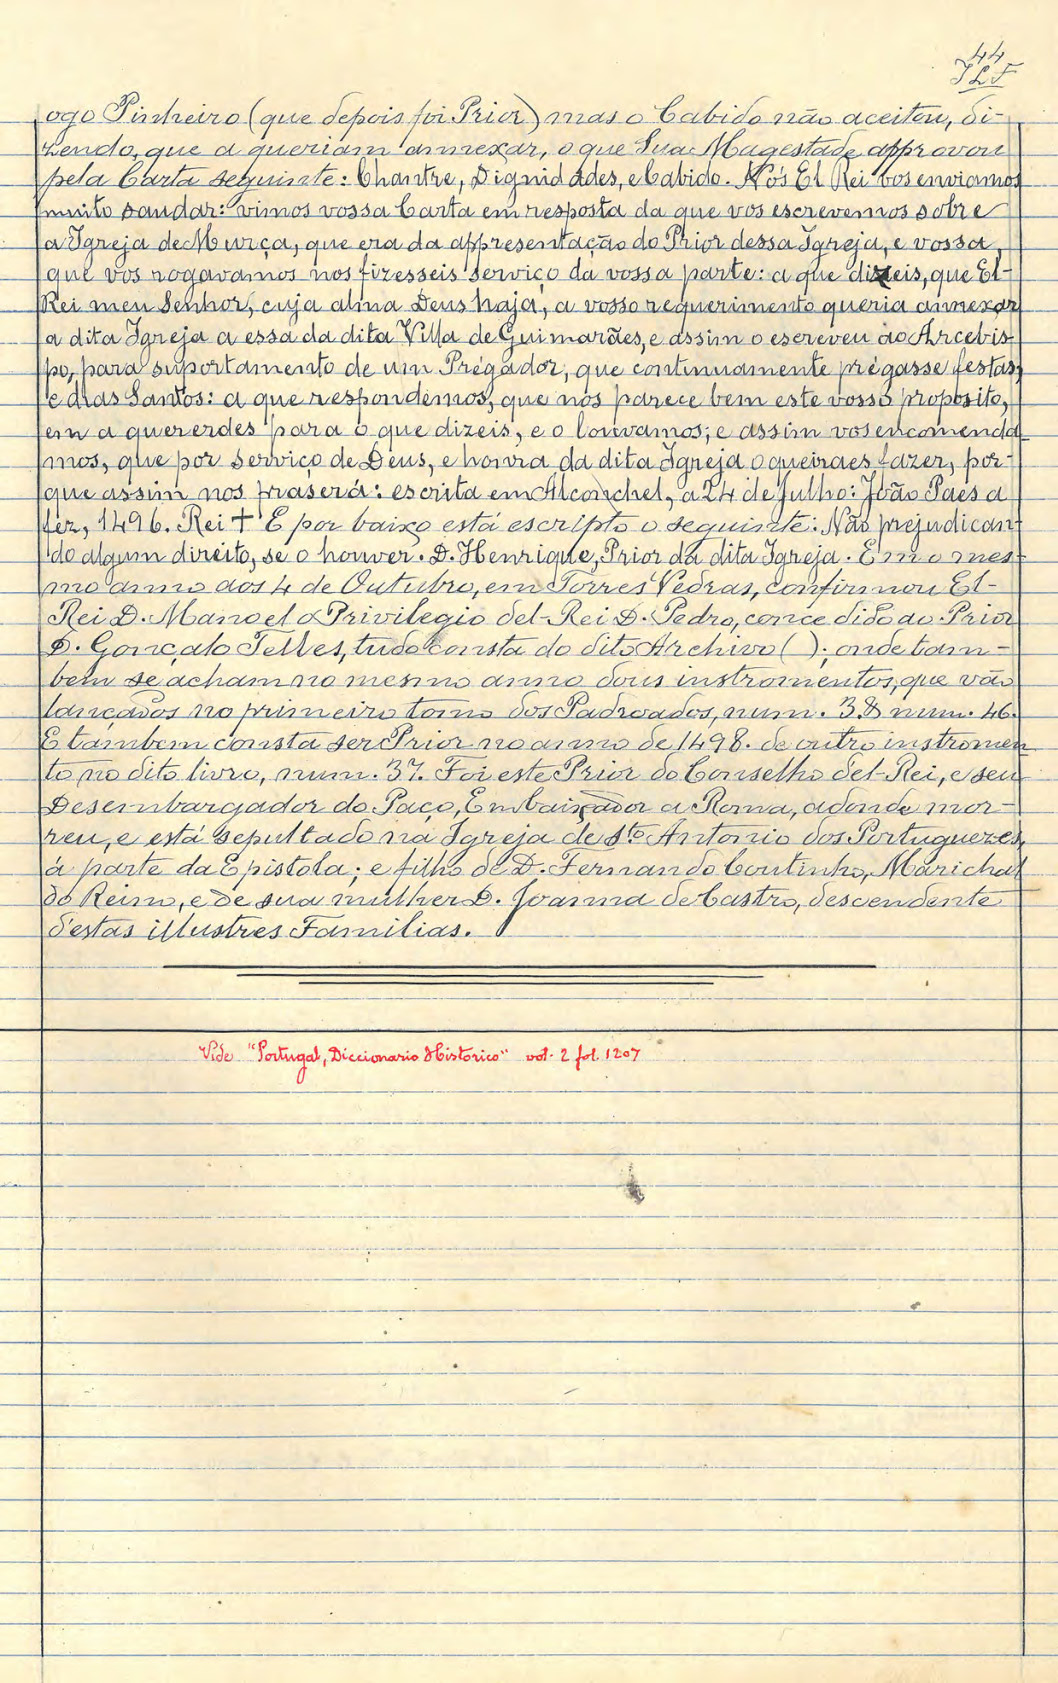 44
JLF
ogo Pinheiro (que depois foi Prior) mas o Cabido não aceitou, di-
zendo, que a queriam annexar, o que Sua Magestade approvou
pela Carta seguinte: Chantre, Dignidades, e Cabido. Nós El Rei vos enviamos
muito saudar: vimos vossa Carta em resposta da que vos escrevemos sobre
a Igreja de Murça, que era da appresentação do Prior dessa Igreja, e vossa,
que vos rogavamos nos fizesseis serviço da vossa parte: a que dizeis, que El-
Rei meu Senhor, cuja alma Deus haja, a vosso requerimento queria annexar
a dita Igreja a essa da dita Villa de Guimarães, e assim o escreveu ao Arcebis-
po, para suportamento de um Prégador, que continuamente prégasse festas,
e dias Santos: a que respondemos, que nos parece bem este vosso proposito,
em a quererdes para o que dizeis, e o louvamos; e assim vos encomenda-
mos, que por serviço de Deus, e honra da dita Igreja o queiraes fazer, por-
que assim nos praserá: escrita em Alconchel, a 24 de Julho: João Paes a
fez, 1496. Rei + E por baixo está escripto o seguinte: Não prejudican-
do algum direito, se o houver. D. Henrique, Prior da dita Igreja. E no mes-
mo anno aos 4 de Outubro, em Torres Vedras, confirmou El-
Rei D. Manoel o Privilegio del-Rei D. Pedro, concedido ao Prior
D. Gonçalo Telles, tudo consta do dito Archivo ( ); onde tam-
bem se acham no mesmo anno dous instromentos, que vão
lançados no primeiro tomo dos Padroados, num. 38 num. 46.
E tambem consta ser Prior no anno de 1498. de outro instromen
to no dito livro, num. 37. Foi este Prior do Conselho del-Rei, e seu
Desembargador do Paço, Embaixador a Roma, adonde mor-
reu, e está sepultado na Igreja de Sto Antonio dos Portuguezes,
á parte da Epistola; e filho de D. Fernando Coutinho, Marichal
do Reino, e de sua mulher D. Joanna de Castro, descendente
d'estas illustres Familias.
Vide "Portugal, Diccionario Historico" vol. 2 fol. 1207